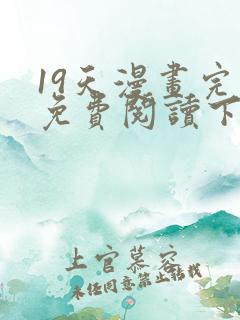 19天漫畫完
免費閱讀下
上官慕容
未经同意禁止转载